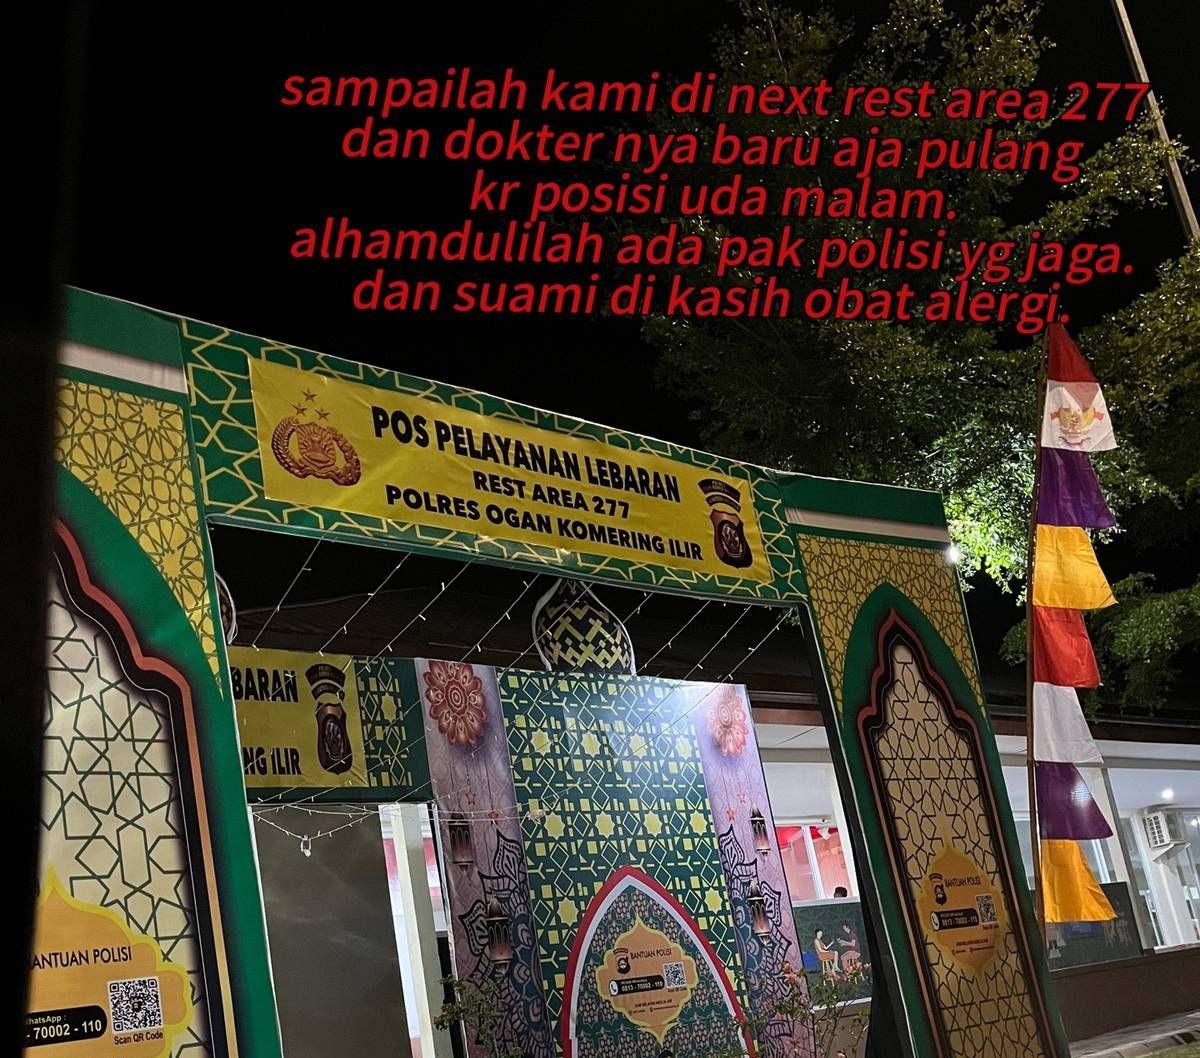 sampailah kami di next rest area 277
dan dokter nya baru aja pulang
kr posisi uda malam.
alhamdulilah ada pak polisi yg jaga.
dan suami di kasih obat alergi.
POS PELAYANAN LEBARAN
REST AREA 277
POLRES OGAN KOMERING ILIR
BARAN
NG ILIR
ANTUAN POLISI
WhatsApp :
- 70002 - 110
Scan QR Code
BANTUAN POLISI
0813 - 70002 - 110
Scan QR Code
BANTUAN POLISI
0813 - 70002 - 110
Scan QR Code